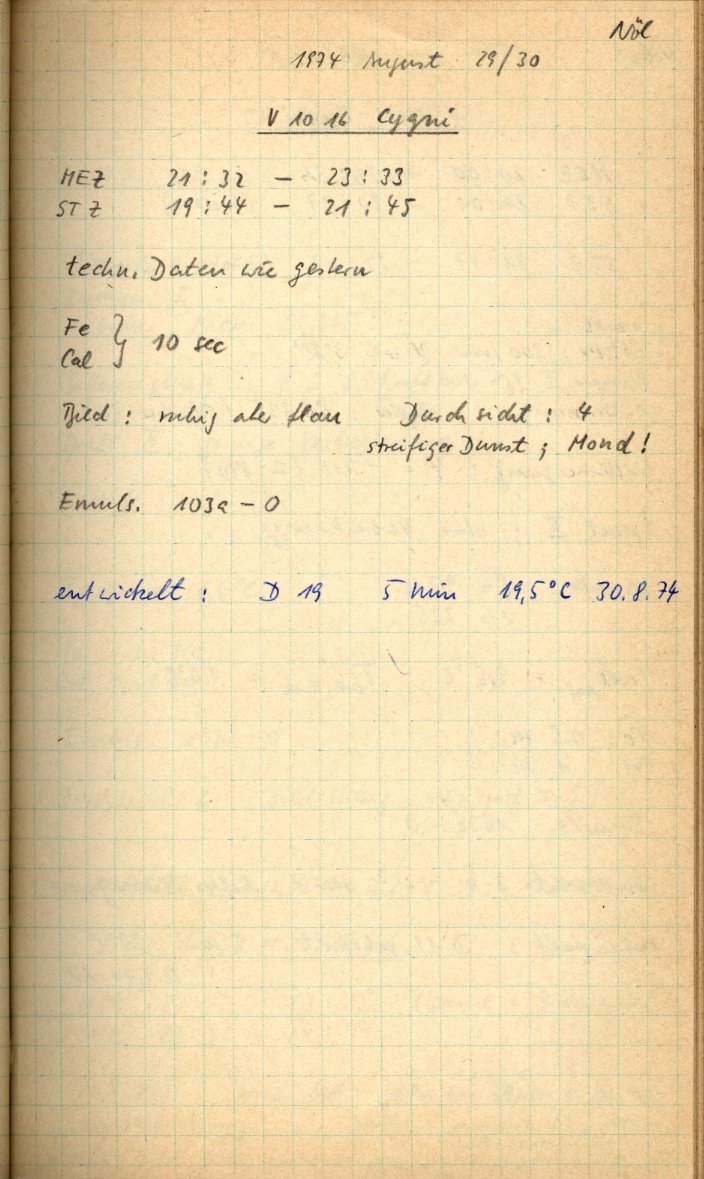 Nöl
1974 August 29/30
V 1016 Cygni
MEZ 21:32 – 23:33
STZ 19:44 – 21:45
techn. Daten wie gestern
Fe
Cal } 10 sec
Bild : ruhig aber flau Durchsicht : 4
streifiger Dunst ; Mond !
Emuls. 103a – O
entwickelt : D 19 5 min 19,5°C 30.8.74